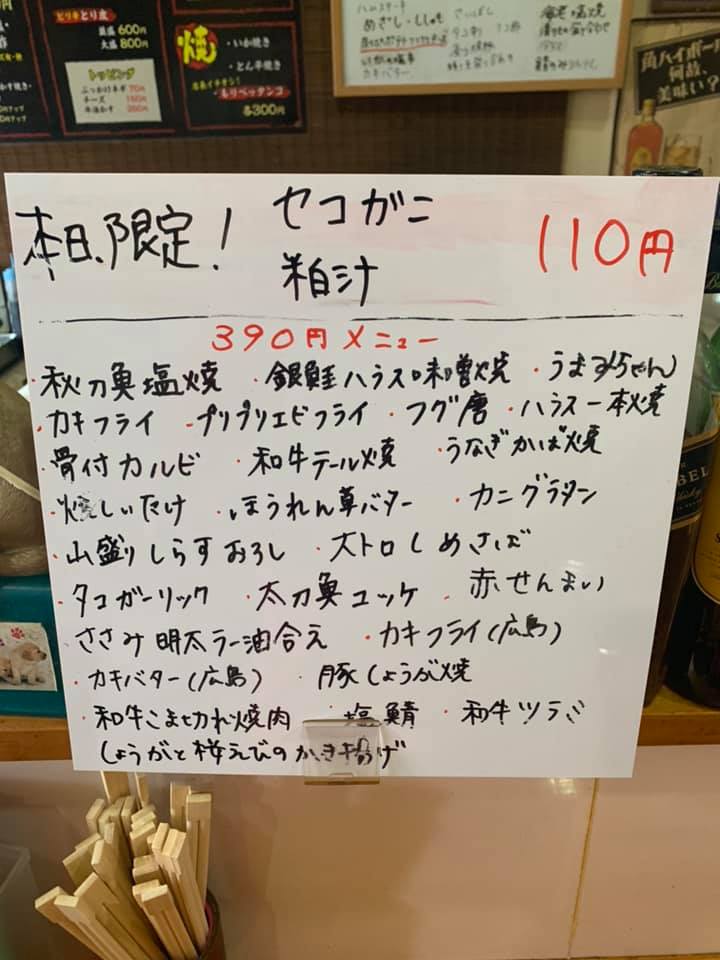 ピリ辛とり皮
並盛 600円
大盛 800円
トッピング
ぶっかけネギ 70円
チーズ 150円
焼
・いか焼き
・とん平焼き
各300円
めざし・ししゃも
カキバター
角ハイボール
何故、
美味い?
本日、限定! セコガニ 粕汁 110円
390円メニュー
・秋刀魚塩焼 ・銀鮭ハラス味噌焼 ・うまみちゃん
・カキフライ ・プリプリエビフライ ・フグ唐 ・ハラス一本焼
・骨付カルビ ・和牛テール焼 ・うなぎかば焼
・焼しいたけ ・ほうれん草バター ・カニグラタン
・山盛りしらすおろし ・大トロしめさば
・タコガーリック ・太刀魚ユッケ ・赤せんまい
・ささみ明太ラー油合え ・カキフライ(広島)
・カキバター(広島) ・豚しょうが焼
・和牛こま切れ焼肉 ・塩鯖 ・和牛ツラミ
しょうがと桜えびのかき揚げ